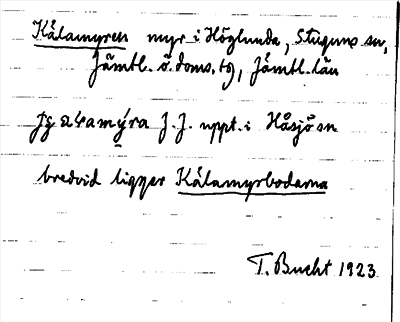 Kälamyren myr i Höglunda, Stuguns sn,
Jämtl. ö. doms. tg, Jämtl. län
J. J. uppt. i Håsjö sn
bredvid ligger Kälamyrbodarna
T. Bucht 1923